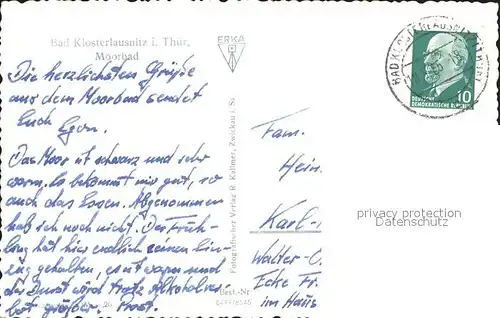 Bad Klosterlausnitz i. Thür.
Moorbad
ERKA
Die herzlichsten Grüße
aus dem Moorbad sendet
Euch Egon.
Das Moor ist schwarz und sehr
warm. Es bekommt mir gut, so
auch das Essen. Abgenommen
hab ich noch nicht. Der Früh-
ling hat hier endlich seinen Ein-
zug gehalten, es ist warm und
der Durst wird trotz Alkoholver-
bot größer. Prost.
Fotografischer Verlag R. Kallmer, Zwickau i. Sa
Best.-Nr
Fam.
Hein
Karl-
Walter-
Ecke Fr.
im Haus
BAD KLOSTERLAUSNITZ
10
DEUTSCHE
DEMOKRATISCHE REPUBLIK
privacy protection
Datenschutz